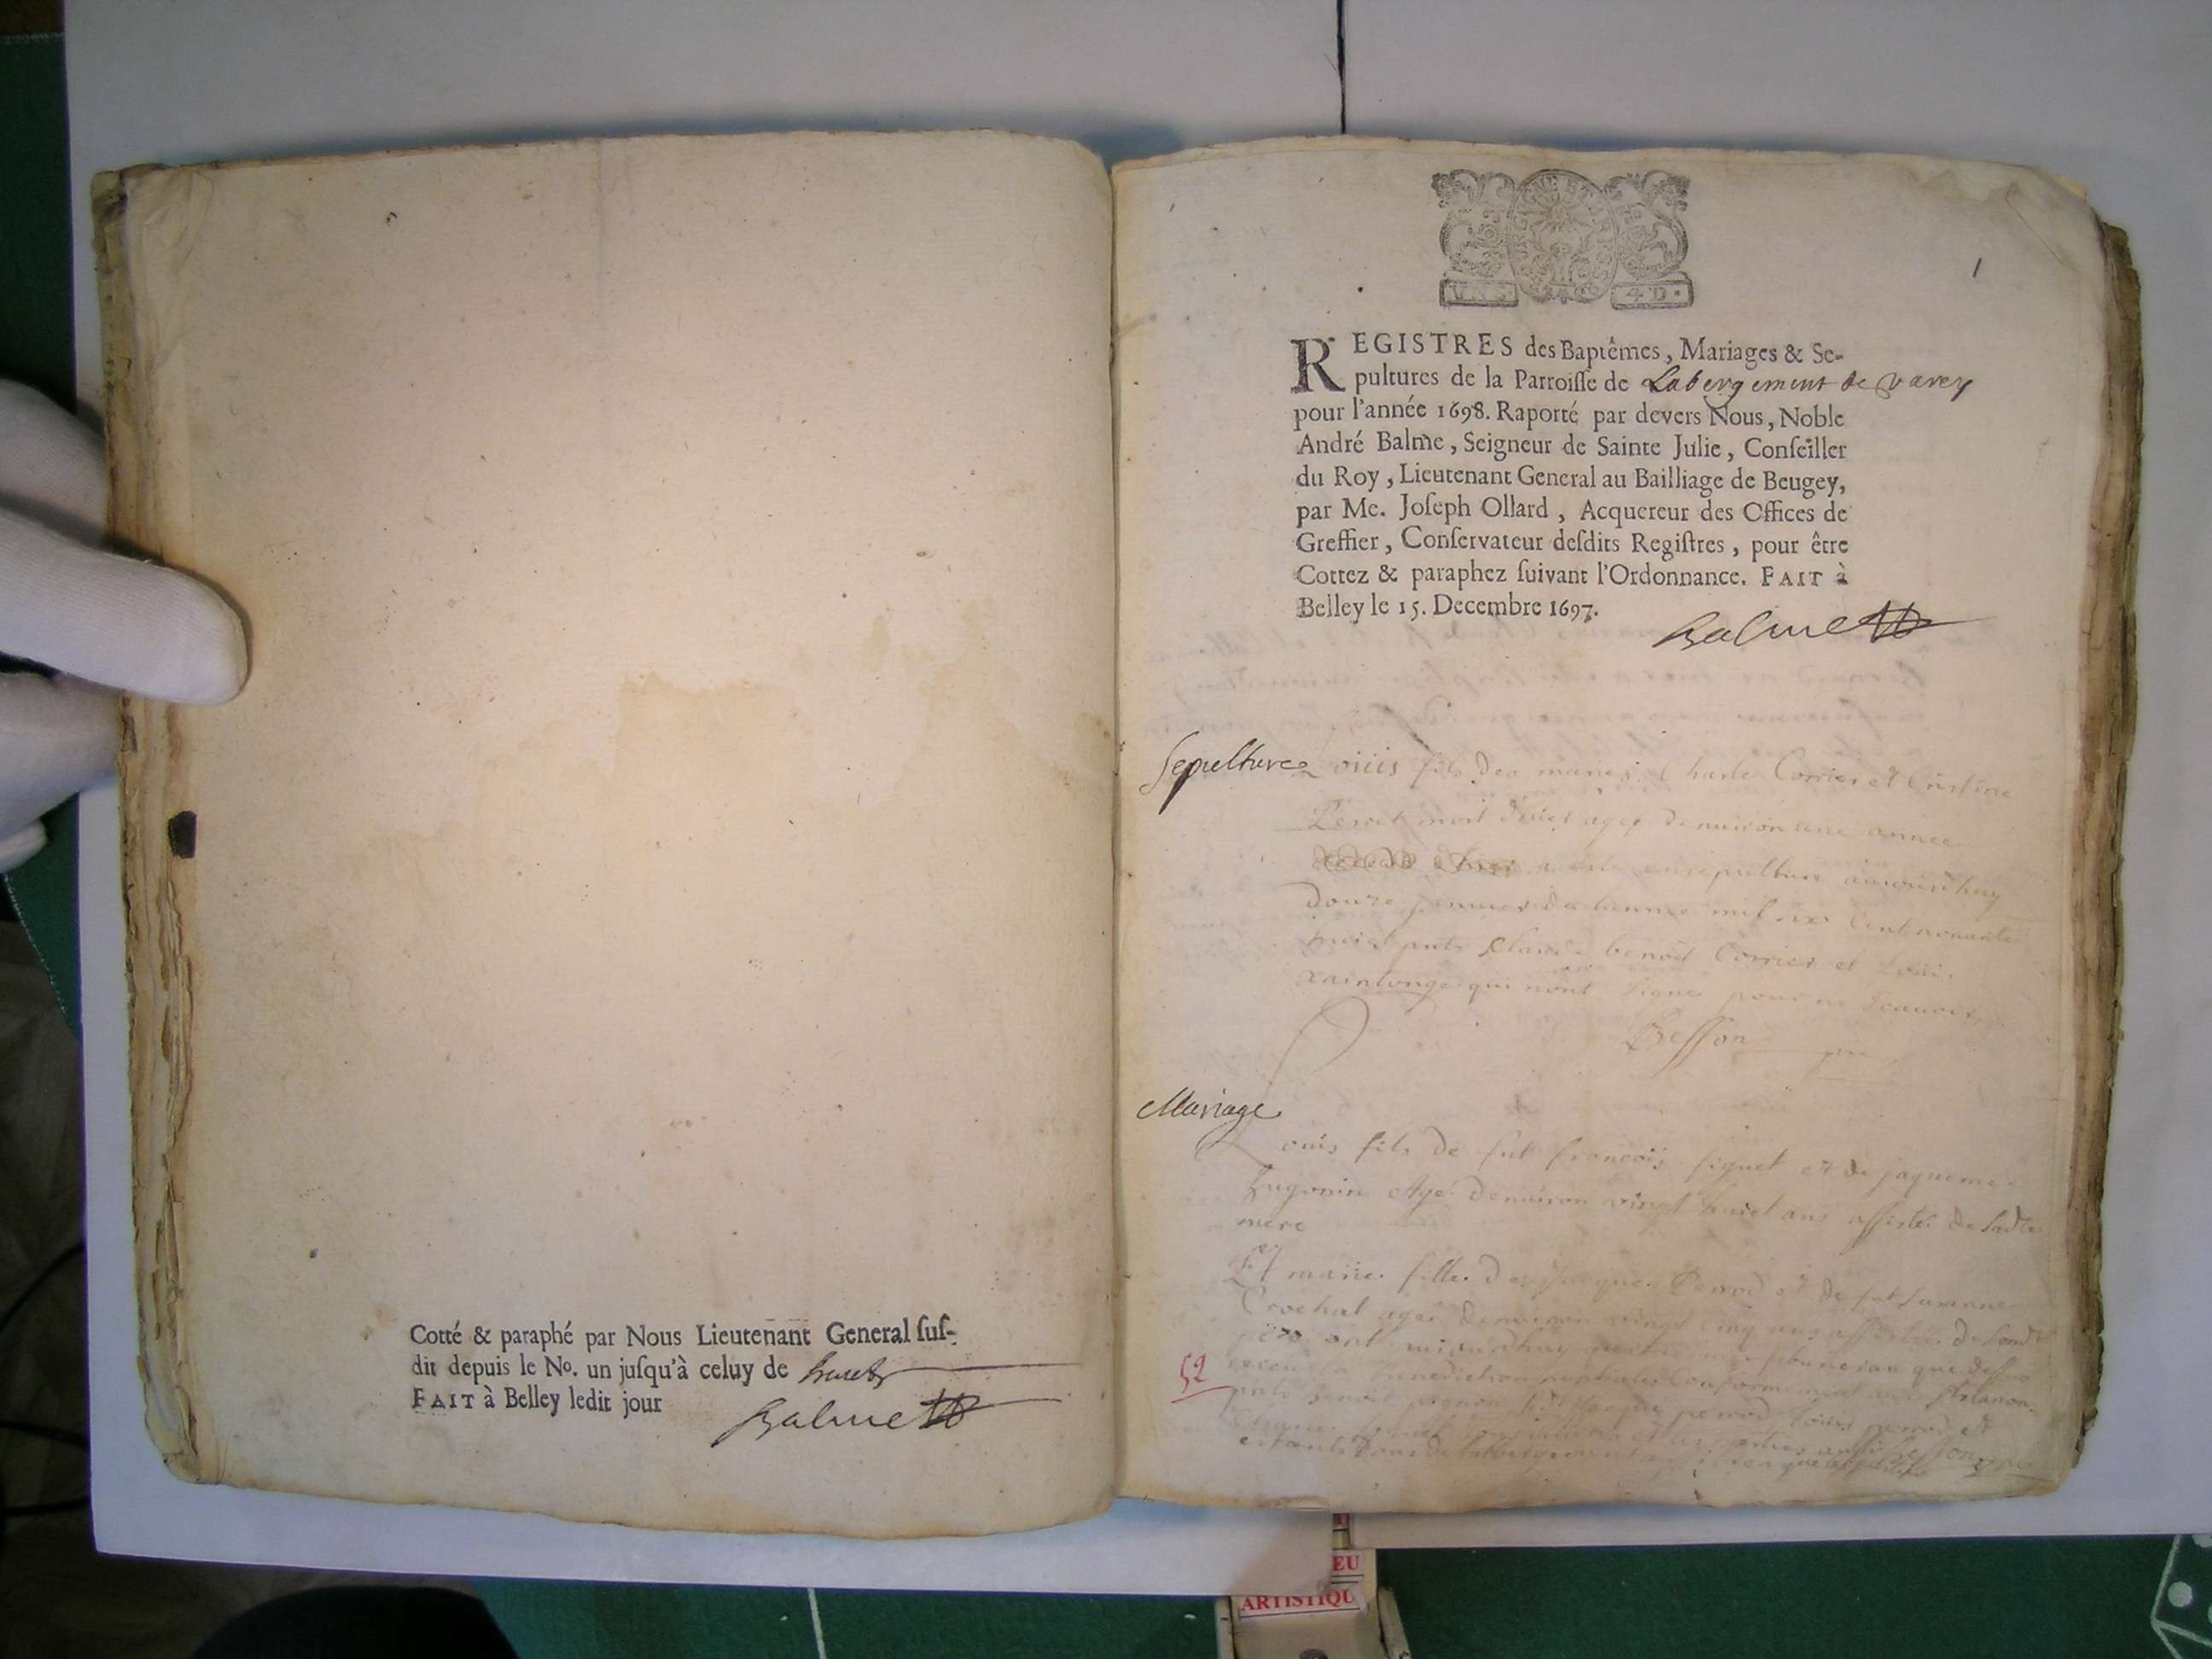 Cotté & paraphé par Nous Lieutenant General suſ-
dit depuis le No. un juſqu'à celuy de huict
FAIT à Belley ledit jour
Balme
1
4 D.
REGISTRES des Baptêmes, Mariages & Se-
pultures de la Parroiſſe de Labergement de varey
pour l'année 1698. Raporté par devers Nous, Noble
André Balme, Seigneur de Sainte Julie, Conſeiller
du Roy, Lieutenant General au Bailliage de Beugey,
par Me. Joſeph Ollard, Acquereur des Offices de
Greffier, Conſervateur deſdits Regiſtres, pour être
Cottez & paraphez ſuivant l'Ordonnance. FAIT à
Belley le 15. Decembre 1697.
Balme
Sepulture
Louiis fils des mariés Charle Corrier et Cristine
Perret mort d'hier agé denuiron une année
a esté ensepulturé aujourdhuy
douze januier de lannee mil six cent nonante
huict pnts Claude benoit Corrier et Louis
Xaintonge qui nont signé pour ne scauoir
Besson
Mariage
Louis fils de fut francois figuet et de jaqueme
hugonin Agé denuiron vingt huict ans assisté de sadte
mere
Et marie fille de jacques Perrod et de fut suzanne
Crochat agée denuiron vingt cinq ans assistée de sondt
pere ont
receu la benediction nuptiale conformement
pnts benoit perrod louis perrod et
52